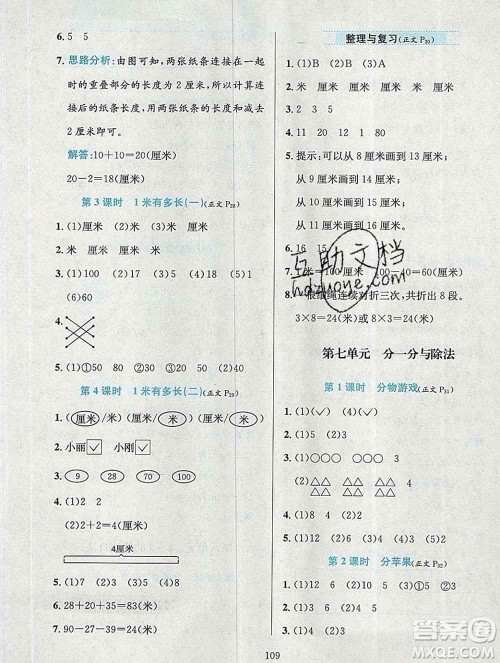 6. 5 5
7. 思路分析：由图可知，两张纸条连接在一起
时的重叠部分的长度为 2 厘米，所以计算连
接后的纸条长度，用两张纸条的长度和减去
2 厘米即可。
解答：10+10=20(厘米)
20-2=18(厘米)
第 3 课时 1 米有多长(一)(正文 P28)
1. (1)厘米 (2)米 (3)厘米 (4)米
2. 米 厘米 厘米 米
3. (1)100 (2)17 (3)35 (4)100
4.
5. (1)①50 ②70 (2)①20 ②40
第 4 课时 1 米有多长(二)(正文 P29)
1. (厘米/米) (厘米/米)(厘米/米)
2. 小丽✓ 小刚✓
3. 9 28 70 150
4. (1)2 2
(2)2+2=4(厘米)
4厘米
5. (1)7 (2)3 (3)5 (4)3
6. 28+20+31=79(厘米)
7. 90-27-39=24(米)
整理与复习(正文 P30)
1. (1)B (2)B (3)A
2. 米 厘米 厘米 米 米 厘米
3. (1)6 (2)3 (3)5
4. 100 11 12 31 80
5. 提示：(1)从 8 厘米画到 13 厘米，
从 9 厘米画到 14 厘米。
6. 16 15
7. 1米=100厘米 100-40=60(厘米)
8. 一根细绳连续对折三次，共折出 8 段。
3×8=24(厘米) 或 8×3=24(厘米)
互助文档
hdzuoye.com
第七单元 分一分与除法
第 1 课时 分物游戏(正文 P31)
1. (1)(✓) (3)(✓)
2. (1)4 (2)3
3. (1)○○○ ○○○ ○○○
(2)△△ △△ △△ △△
△△ △△ △△ △△
4. (1)4 (2)3
5. (1)3 (2)4
第 2 课时 分苹果(正文 P32)
1. (1)2 (2)4 (3)6
2. (1)①3 ②4 (2)4
109
答案圈
MXQE.COM